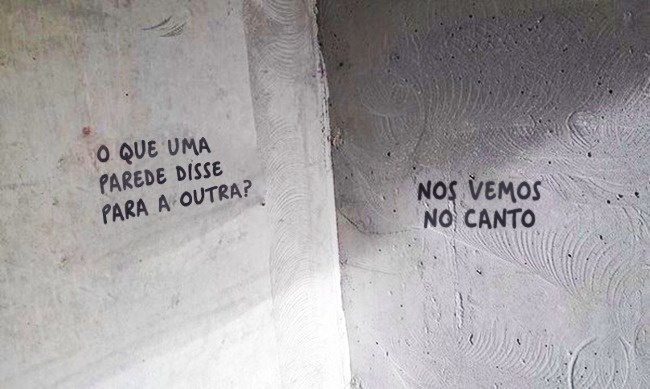 O QUE UMA
PAREDE DISSE
PARA A OUTRA?
NOS VEMOS
NO CANTO